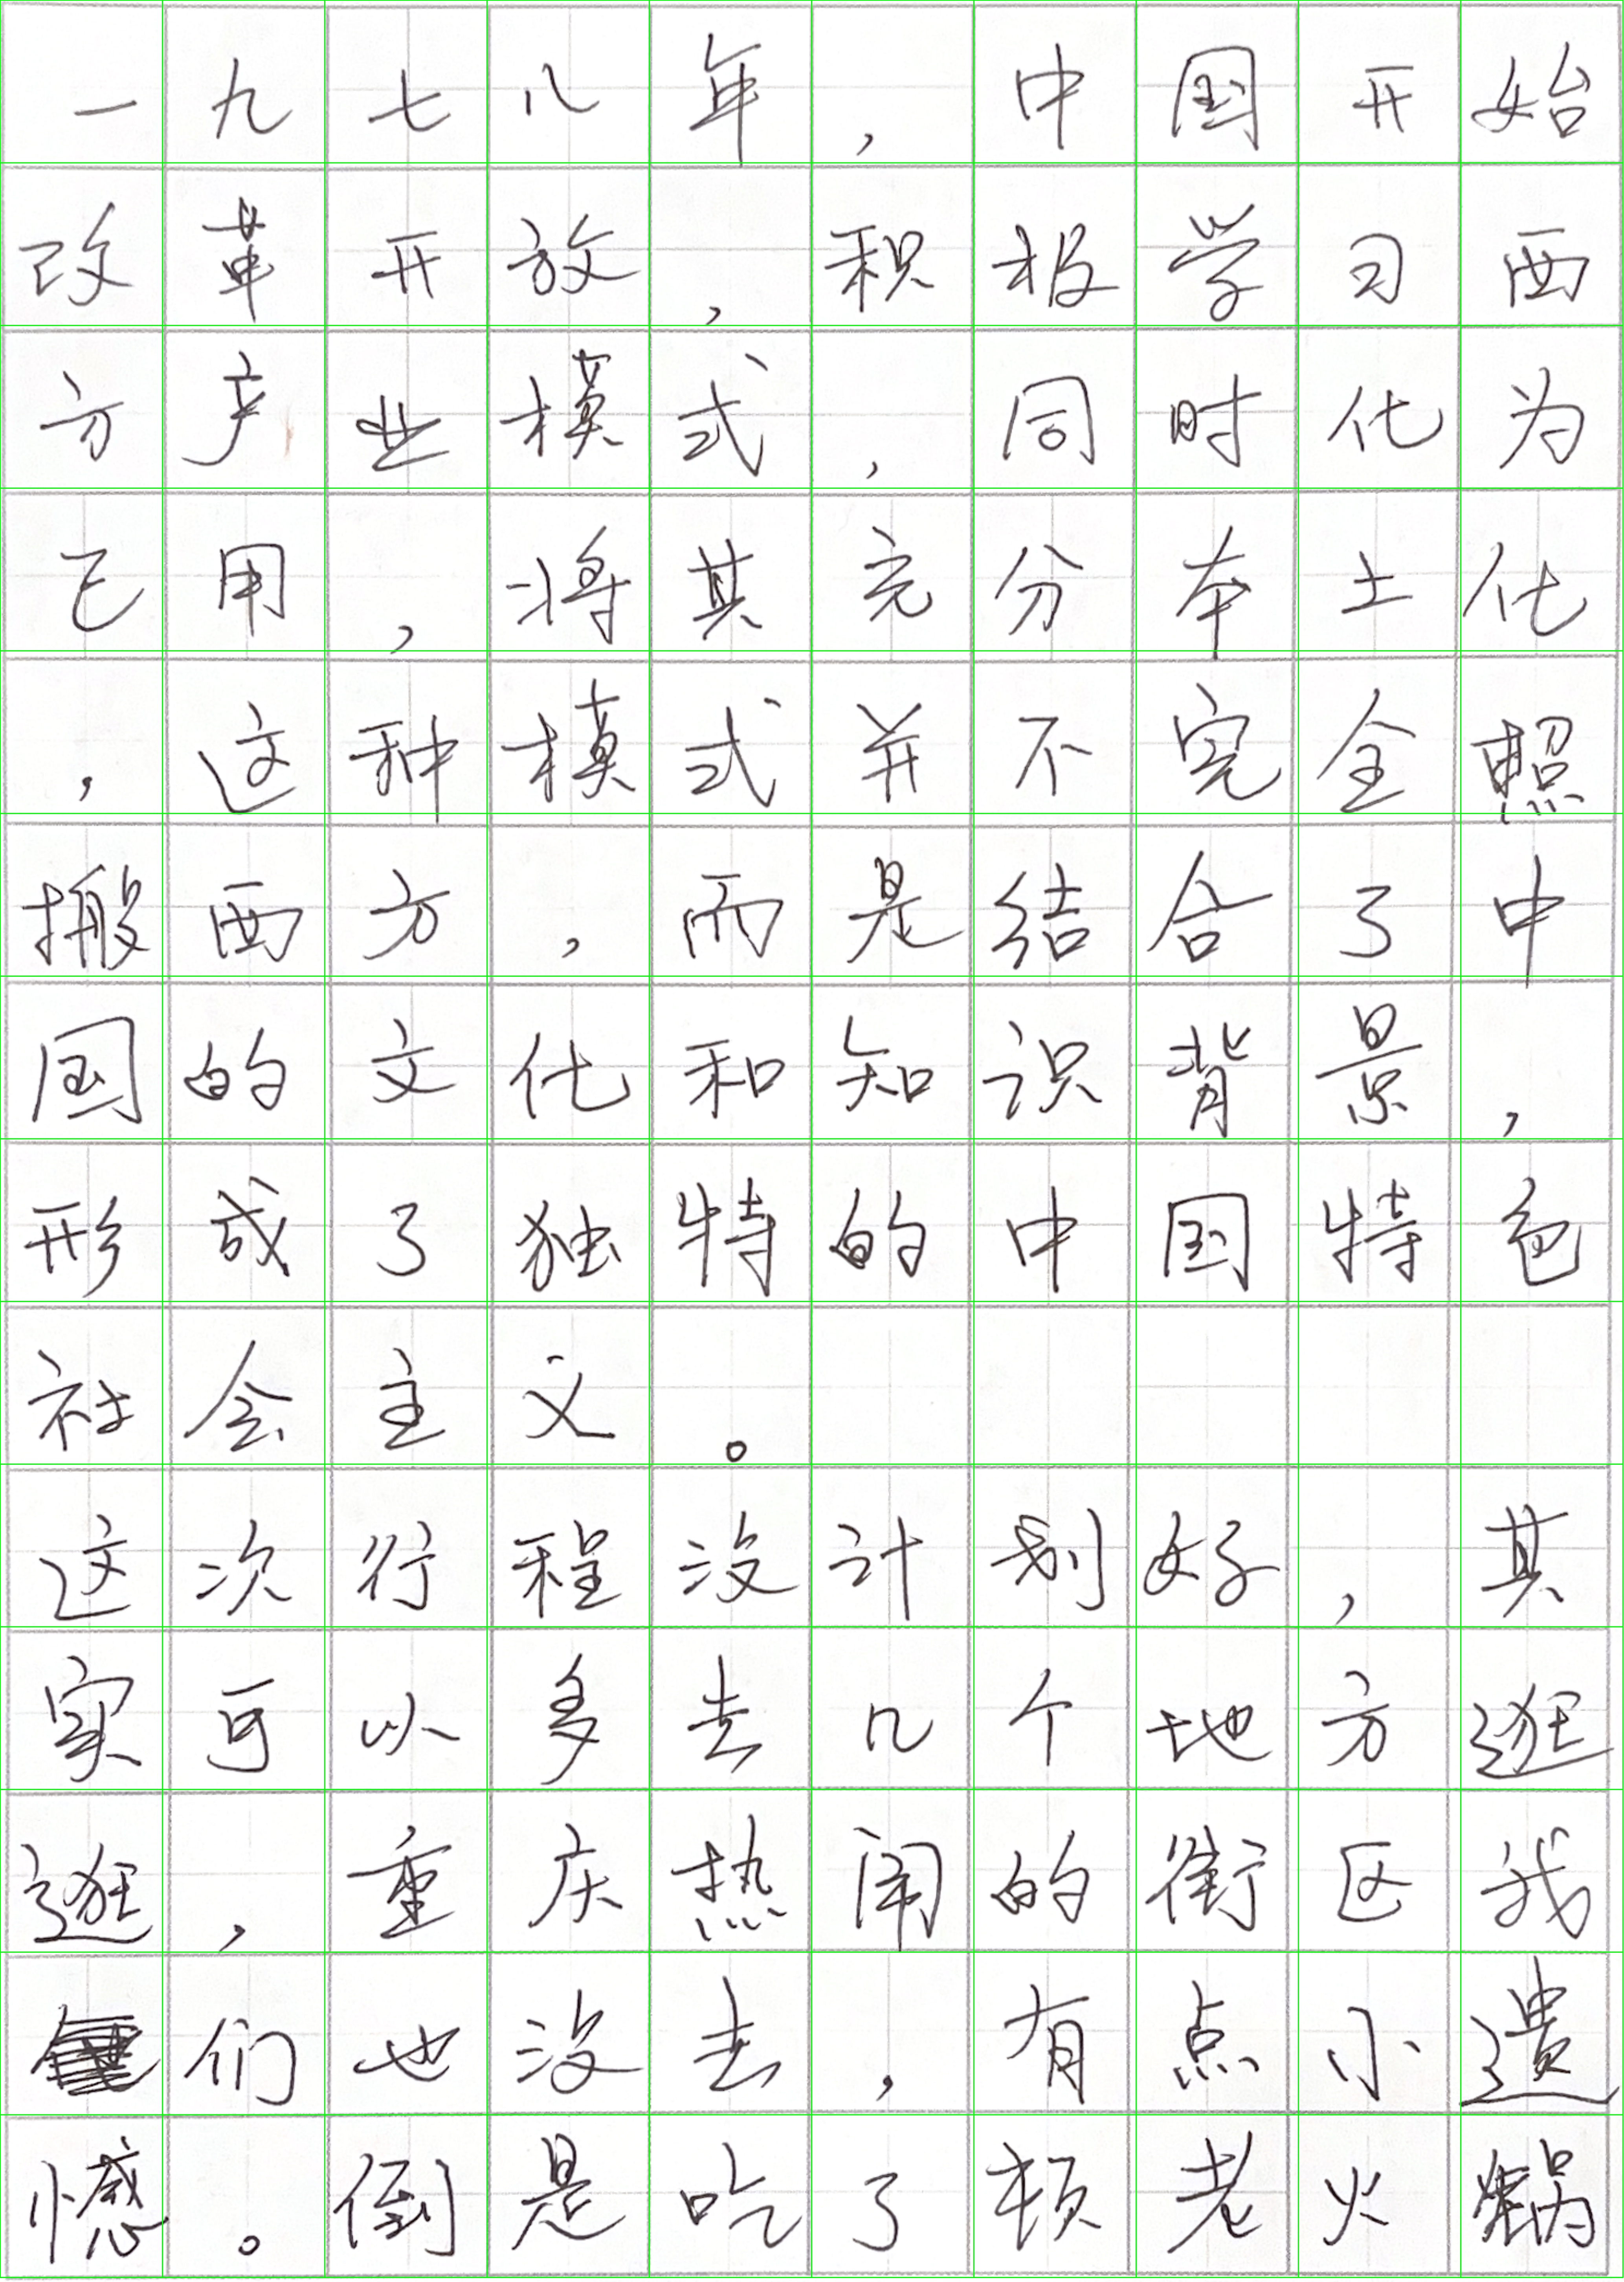 一九七八年,中国开始
改革开放,积极学习西
方产业模式,同时化为
己用,将其充分本土化
,这种模式并不完全照
搬西方,而是结合了中
国的文化和知识背景,
形成了独特的中国特色
社会主义。
这次行程没计划好,其
实可以多去几个地方逛
逛,重庆热闹的街区我
们也没去,有点小遗
憾。倒是吃了顿老火锅